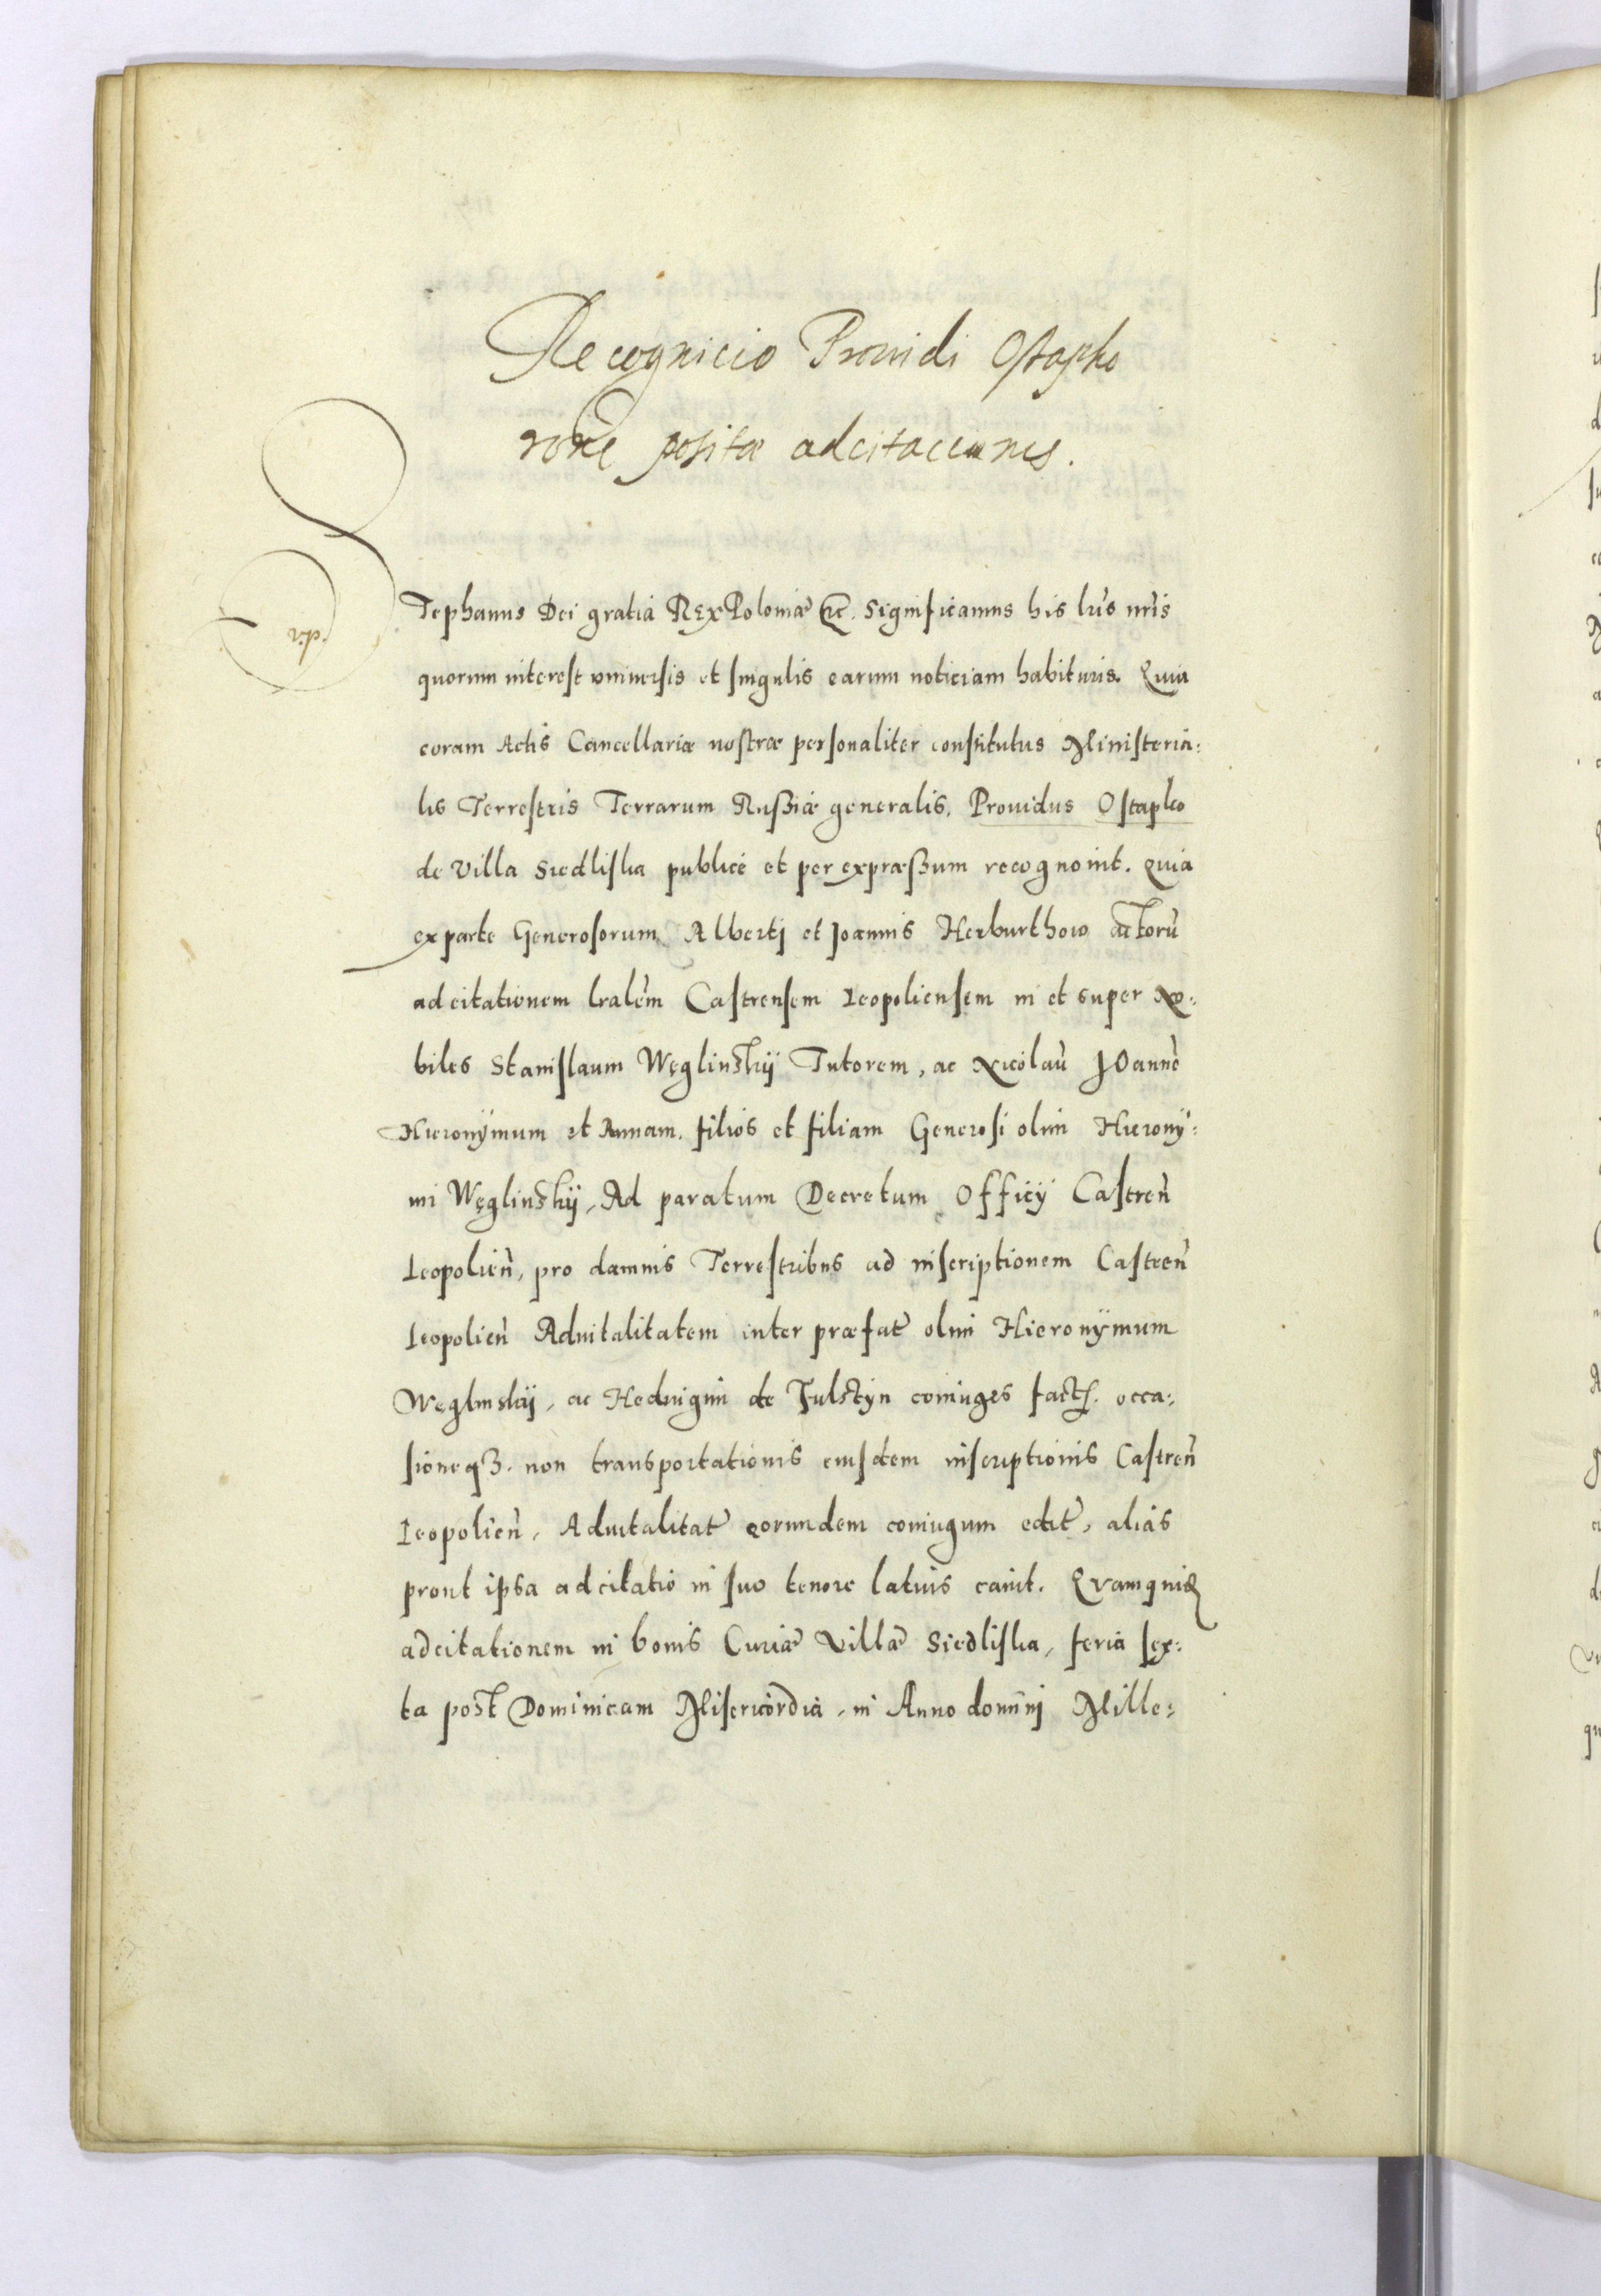 Recognicio Prouidi Ostapko
rõne positæ adcitacionis.
Stephanus Dei gratia Rex Poloniæ etc. Significamus his lr̃is nr̃is
quorum interest vniuersis et singulis earum noticiam habituris. Quia
coram Actis Cancellariæ nostræ personaliter constitutus Ministeria:
lis Terrestris Terrarum Rußiæ generalis, Prouidus Ostapko
de Villa Siedliska publicè et per expræßum recognouit. Quia
ex parte Generosorum Alberti et Joannis Herburthow actorũ
adcitationem lralẽm Castrensem Leopoliensem in et super No:
biles Stanislaum Węglinskÿ Tutorem, ac Nicolaũ JOannẽ
Hieronÿmum et Annam, filios et filiam Generosi olim Hieronÿ:
mi Węglinskÿ, Ad paratum Decretum Officÿ Castreñ
Leopolieñ, pro damnis Terrestribus ad inscriptionem Castreñ
Leopolieñ Aduitalitatem inter præfat̃ olim Hieronÿmum
Węglinskÿ, ac Heduigim de Fulstÿn coniuges fact. occa:
sioneqꝫ. non transportationis eiusdem inscriptionis Castreñ
Leopolieñ, Aduitalitat̃ eorundem coniugum edit̃, alias
prout ipsa adcitatio in suo tenore latius canit. Quamquid
adcitationem in bonis Curiæ Villæ Siedliska, feria sex:
ta post Dominicam Misericordia, in Anno domini Mille: